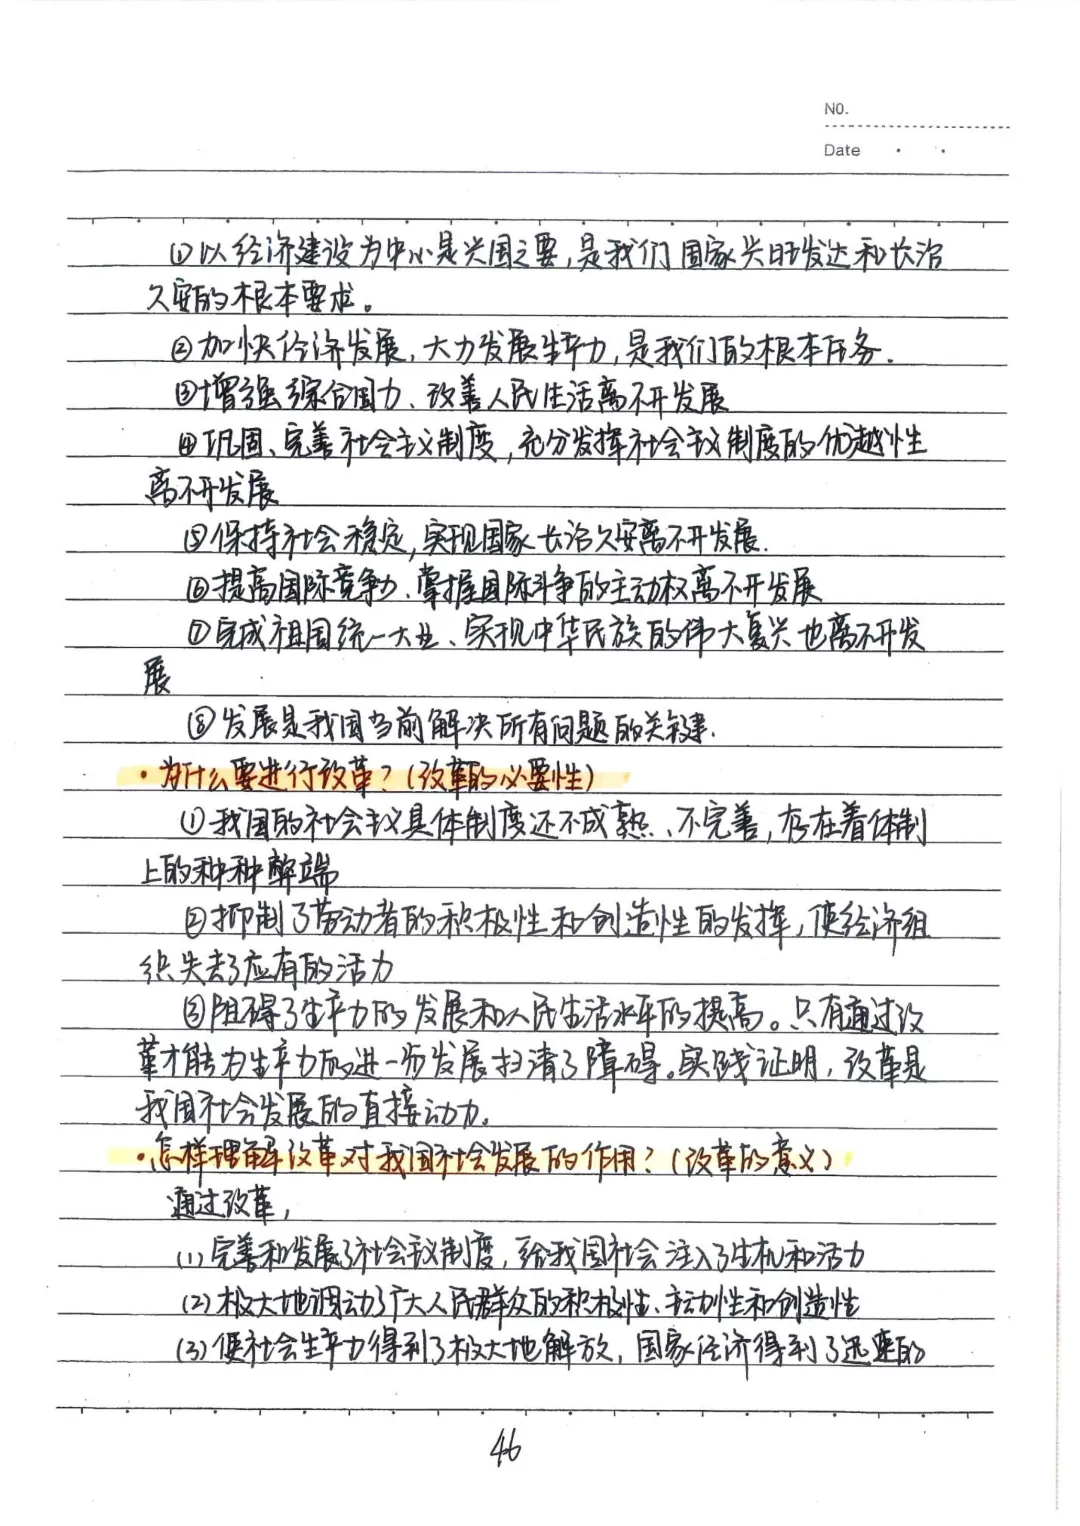 NO.
Date
①以经济建设为中心是兴国之要,是我们国家兴旺发达和长治
久安的根本要求。
②加快经济发展,大力发展生产力,是我们的根本任务.
③增强综合国力、改善人民生活离不开发展
④巩固、完善社会主义制度,充分发挥社会主义制度的优越性
离不开发展
⑤保持社会稳定,实现国家长治久安离不开发展.
⑥提高国际竞争力、掌握国际斗争的主动权离不开发展
⑦完成祖国统一大业、实现中华民族的伟大复兴也离不开发
展
⑧发展是我国当前解决所有问题的关键.
·为什么要进行改革?(改革的必要性)
①我国的社会主义具体制度还不成熟、不完善,存在着体制
上的种种弊端
②抑制了劳动者的积极性和创造性的发挥,使经济组
织失去了应有的活力
③阻碍了生产力的发展和人民生活水平的提高。只有通过改
革才能为生产力的进一步发展扫清了障碍。实践证明,改革是
我国社会发展的直接动力。
·怎样理解改革对我国社会发展的作用?(改革的意义)
通过改革,
(1)完善和发展了社会主义制度,给我国社会注入了生机和活力
(2)极大地调动了广大人民群众的积极性、主动性和创造性
(3)使社会生产力得到了极大地解放,国家经济得到了迅速的
46